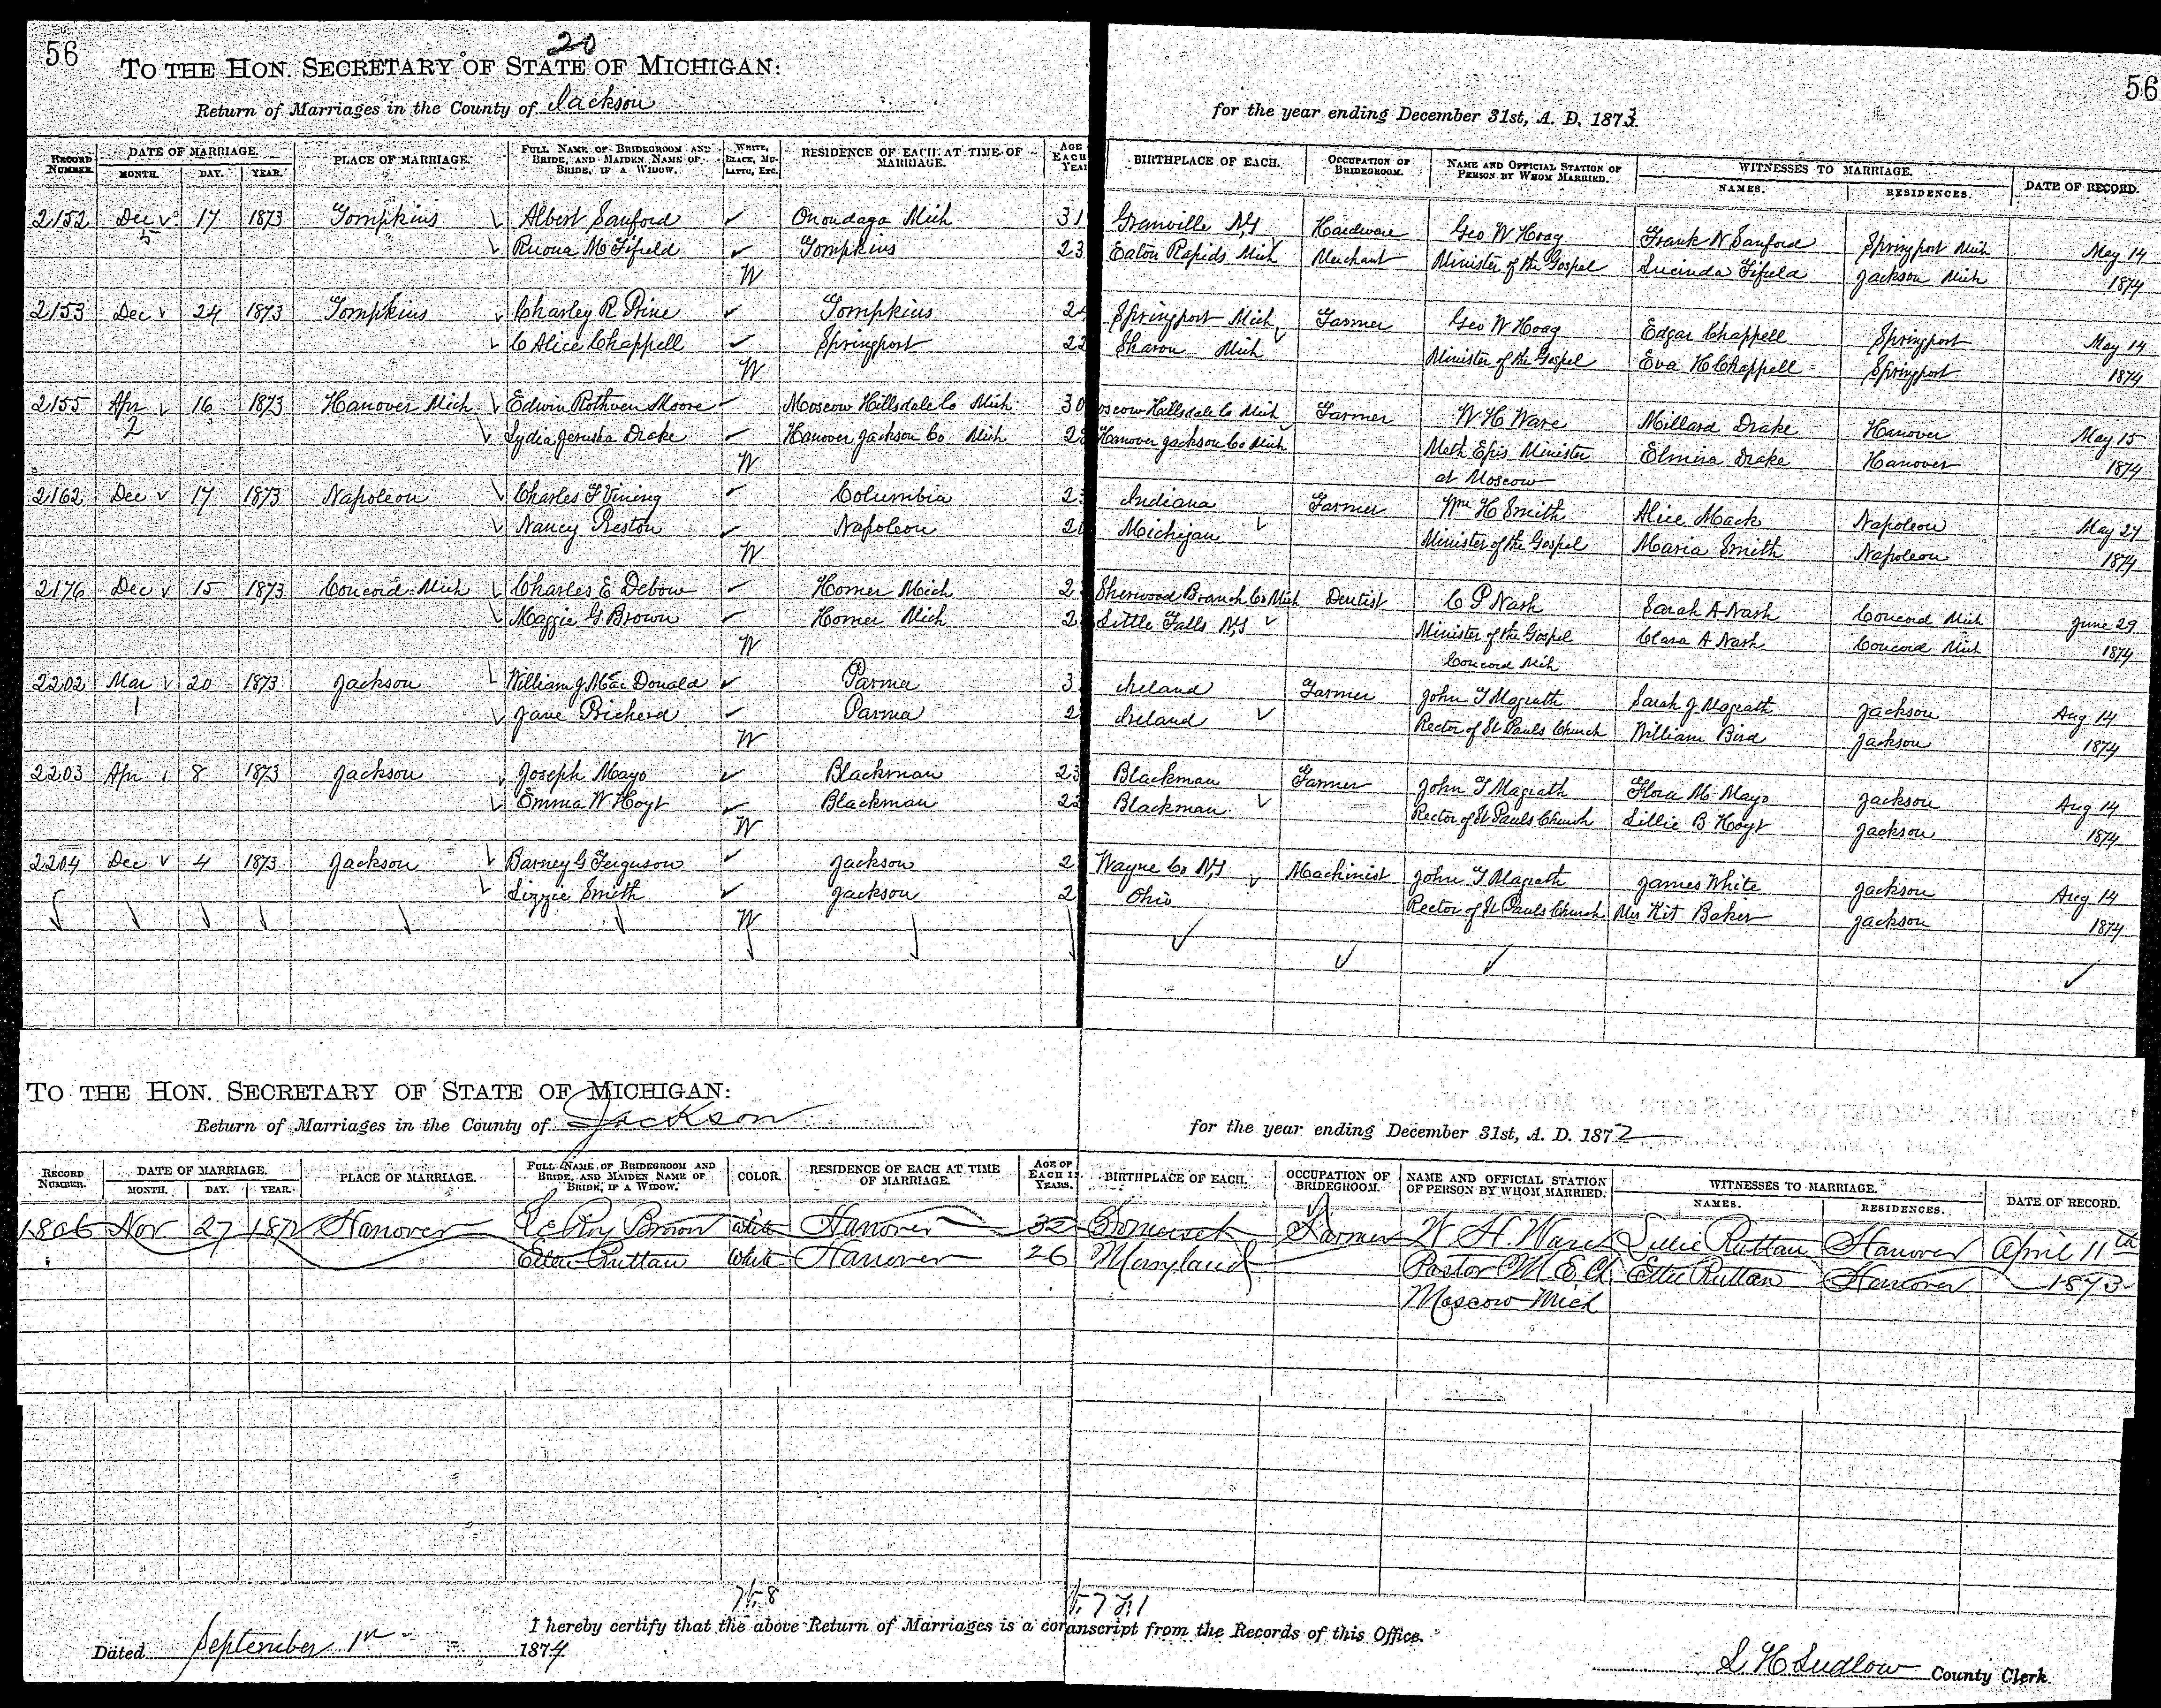 56
20
56
TO THE HON. SECRETARY OF STATE OF MICHIGAN:
Return of Marriages in the County of Jackson for the year ending December 31st, A. D. 1873.
RECORD NUMBER. DATE OF MARRIAGE. MONTH. DAY. YEAR. PLACE OF MARRIAGE. FULL NAME OF BRIDEGROOM AND BRIDE, AND MAIDEN NAME OF BRIDE, IF A WIDOW. WHITE, BLACK, MULATTO, ETC. RESIDENCE OF EACH AT TIME OF MARRIAGE. AGE EACH YEAR BIRTHPLACE OF EACH. OCCUPATION OF BRIDEGROOM. NAME AND OFFICIAL STATION OF PERSON BY WHOM MARRIED. WITNESSES TO MARRIAGE. NAMES. RESIDENCES. DATE OF RECORD.
2152 Dec 17 1873 Tompkins Albert Sanford Onondaga Mich 31 Granville N.Y Hardware Geo W Hoag Frank N Sanford Springport Mich May 14
5 Ruona M Fifield Tompkins 23 Eaton Rapids Mich Merchant Minister of the Gospel Lucinda Fifield Jackson Mich 1874
W
2153 Dec 24 1873 Tompkins Charley R Prine Tompkins 24 Springport Mich Farmer Geo W Hoag Edgar Chappell Springport May 14
C Alice Chappell Springport 22 Sharon Mich Minister of the Gospel Eva H Chappell Springport 1874
W
2155 Apr 16 1873 Hanover Mich Edwin Rothven Moore Moscow Hillsdale Co Mich 30 oscow Hillsdale Co Mich Farmer W H Ware Millard Drake Hanover May 15
2 Lydia Jerusha Drake Hanover Jackson Co Mich 2 Hanover Jackson Co Mich Meth Epis Minister Elmira Drake Hanover 1874
W at Moscow
2162 Dec 17 1873 Napoleon Charles F Vining Columbia 23 Indiana Farmer Wm H Smith Alice Mack Napoleon May 27
Nancy Preston Napoleon 2 Michigan Minister of the Gospel Maria Smith Napoleon 1874
W
2176 Dec 15 1873 Concord Mich Charles E Debow Homer Mich 2 Sherwood Branch Co Mich Dentist C P Nash Sarah A Nash Concord Mich June 29
Maggie G Brown Homer Mich 2 Little Falls N.Y Minister of the Gospel Clara A Nash Concord Mich 1874
W Concord Mich
2202 Mar 20 1873 Jackson William J MacDonald Parma 3 Ireland Farmer John T Magrath Sarah J Magrath Jackson Aug 14
1 Jane Pricherd Parma 2 Ireland Rector of St Pauls Church William Bird Jackson 1874
W
2203 Apr 8 1873 Jackson Joseph Mayo Blackman 23 Blackman Farmer John T Magrath Flora M Mayo Jackson Aug 14
Emma W Hoyt Blackman 22 Blackman Rector of St Pauls Church Lillie B Hoyt Jackson 1874
W
2204 Dec 4 1873 Jackson Barney G Ferguson Jackson 2 Wayne Co N.Y Machinist John T Magrath James White Jackson Aug 14
Lizzie Smith Jackson 2 Ohio Rector of St Pauls Church Mrs Kit Baker Jackson 1874
W
TO THE HON. SECRETARY OF STATE OF MICHIGAN:
Return of Marriages in the County of Jackson for the year ending December 31st, A. D. 1872
RECORD NUMBER. DATE OF MARRIAGE. MONTH. DAY. YEAR. PLACE OF MARRIAGE. FULL NAME OF BRIDEGROOM AND BRIDE, AND MAIDEN NAME OF BRIDE, IF A WIDOW. COLOR. RESIDENCE OF EACH AT TIME OF MARRIAGE. AGE OF EACH IN YEARS. BIRTHPLACE OF EACH. OCCUPATION OF BRIDEGROOM. NAME AND OFFICIAL STATION OF PERSON BY WHOM MARRIED. WITNESSES TO MARRIAGE. NAMES. RESIDENCES. DATE OF RECORD.
1806 Nov 27 1872 Hanover LeRoy Brown White Hanover 32 Somerset Farmer W H. Ware Lillie Ruttan Hanover April 11th
Ruttan White Hanover 26 Maryland Pastor M E Ch Ettie Ruttan Hanover 1873
Moscow Mich
I hereby certify that the above Return of Marriages is a cor anscript from the Records of this Office.
Dated September 1st 1874
L. H Ludlow County Clerk.